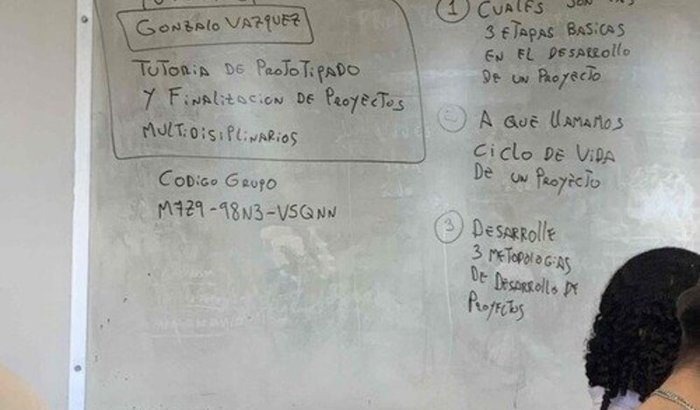 GONZALO VAZQUEZ
TUTORIA DE PROTOTIPADO
Y FINALIZACION DE PROYECTOS
MULTIDISIPLINARIOS
CODIGO GRUPO
M7Z9-98N3-VSQNN
1 CUALES SON LAS
3 ETAPAS BASICAS
EN EL DESARROLLO
DE UN PROYECTO
2 A QUE LLAMAMOS
CICLO DE VIDA
DE UN PROYECTO
3 DESARROLLE
3 METODOLOGIAS
DE DESARROLLO DE
PROYECTOS